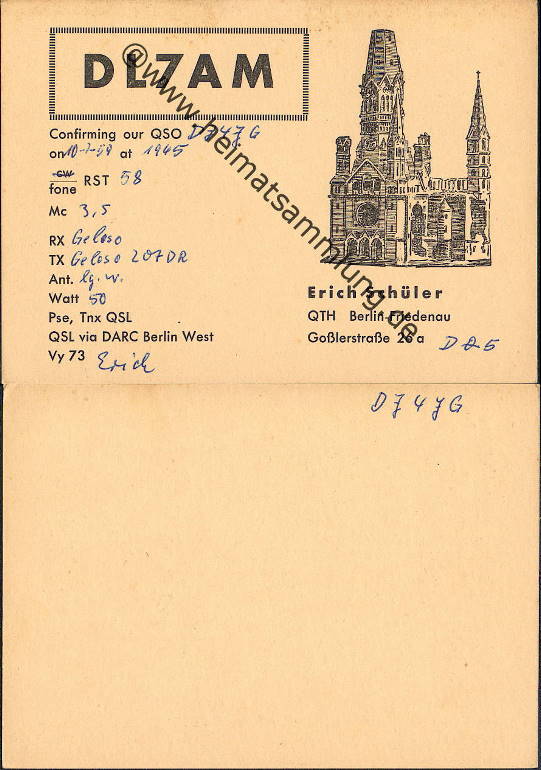 DL7AM
Confirming our QSO DJ4JG
on 10-7-59 at 1945
cw
fone RST 58
Mc 3,5
RX Geloso
TX Geloso 207 DR
Ant. lg. w.
Watt 50
Pse, Tnx QSL
QSL via DARC Berlin West
Vy 73 Erich
Erich Schüler
QTH Berlin-Friedenau
Goßlerstraße 26 a
D 05
@www.heimatsammlung.de
DJ4JG